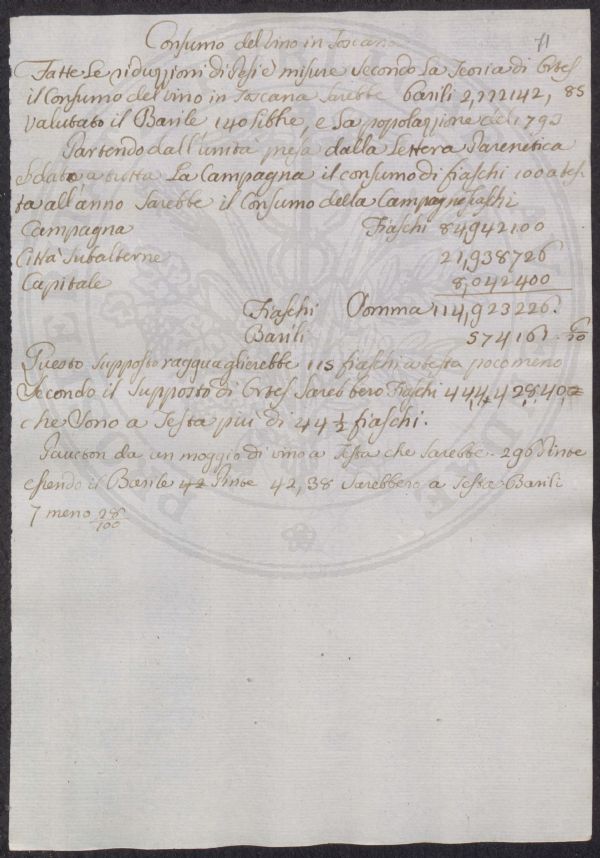 Consumo del Vino in Toscana
71
Fatte Le riduzzioni di Pesi e misure secondo La Teoria di Ortes
il Consumo del vino in Toscana sarebbe barili 2,222142, 85
valutato il Barile 140 libbre, e La popolazzione del 1793
Partendo dall'unità presa dalla Lettera Parenetica
e data a tutta La Campagna il consumo di fiaschi 100 a tes
ta all'anno sarebbe il Consumo della Campagna fiaschi
Campagna Fiaschi 84942100
Città Subalterne 21,938726
Capitale 8,042400
Fiaschi Somma 114,923226.
Barili 574161 . 6/20
Questo supposto ragguaglierebbe 115 fiaschi a testa poco meno
Secondo il supposto di Ortes Sarebbero Fiaschi 44,4,428,40
che sono a Testa più di 44 1/2 fiaschi.
Paucton da un moggio di vino a Testa che sarebbe 296 Pinte
essendo il Barile 42 Pinte 42,38 sarebbero a Testa Barili
7 meno 28/100